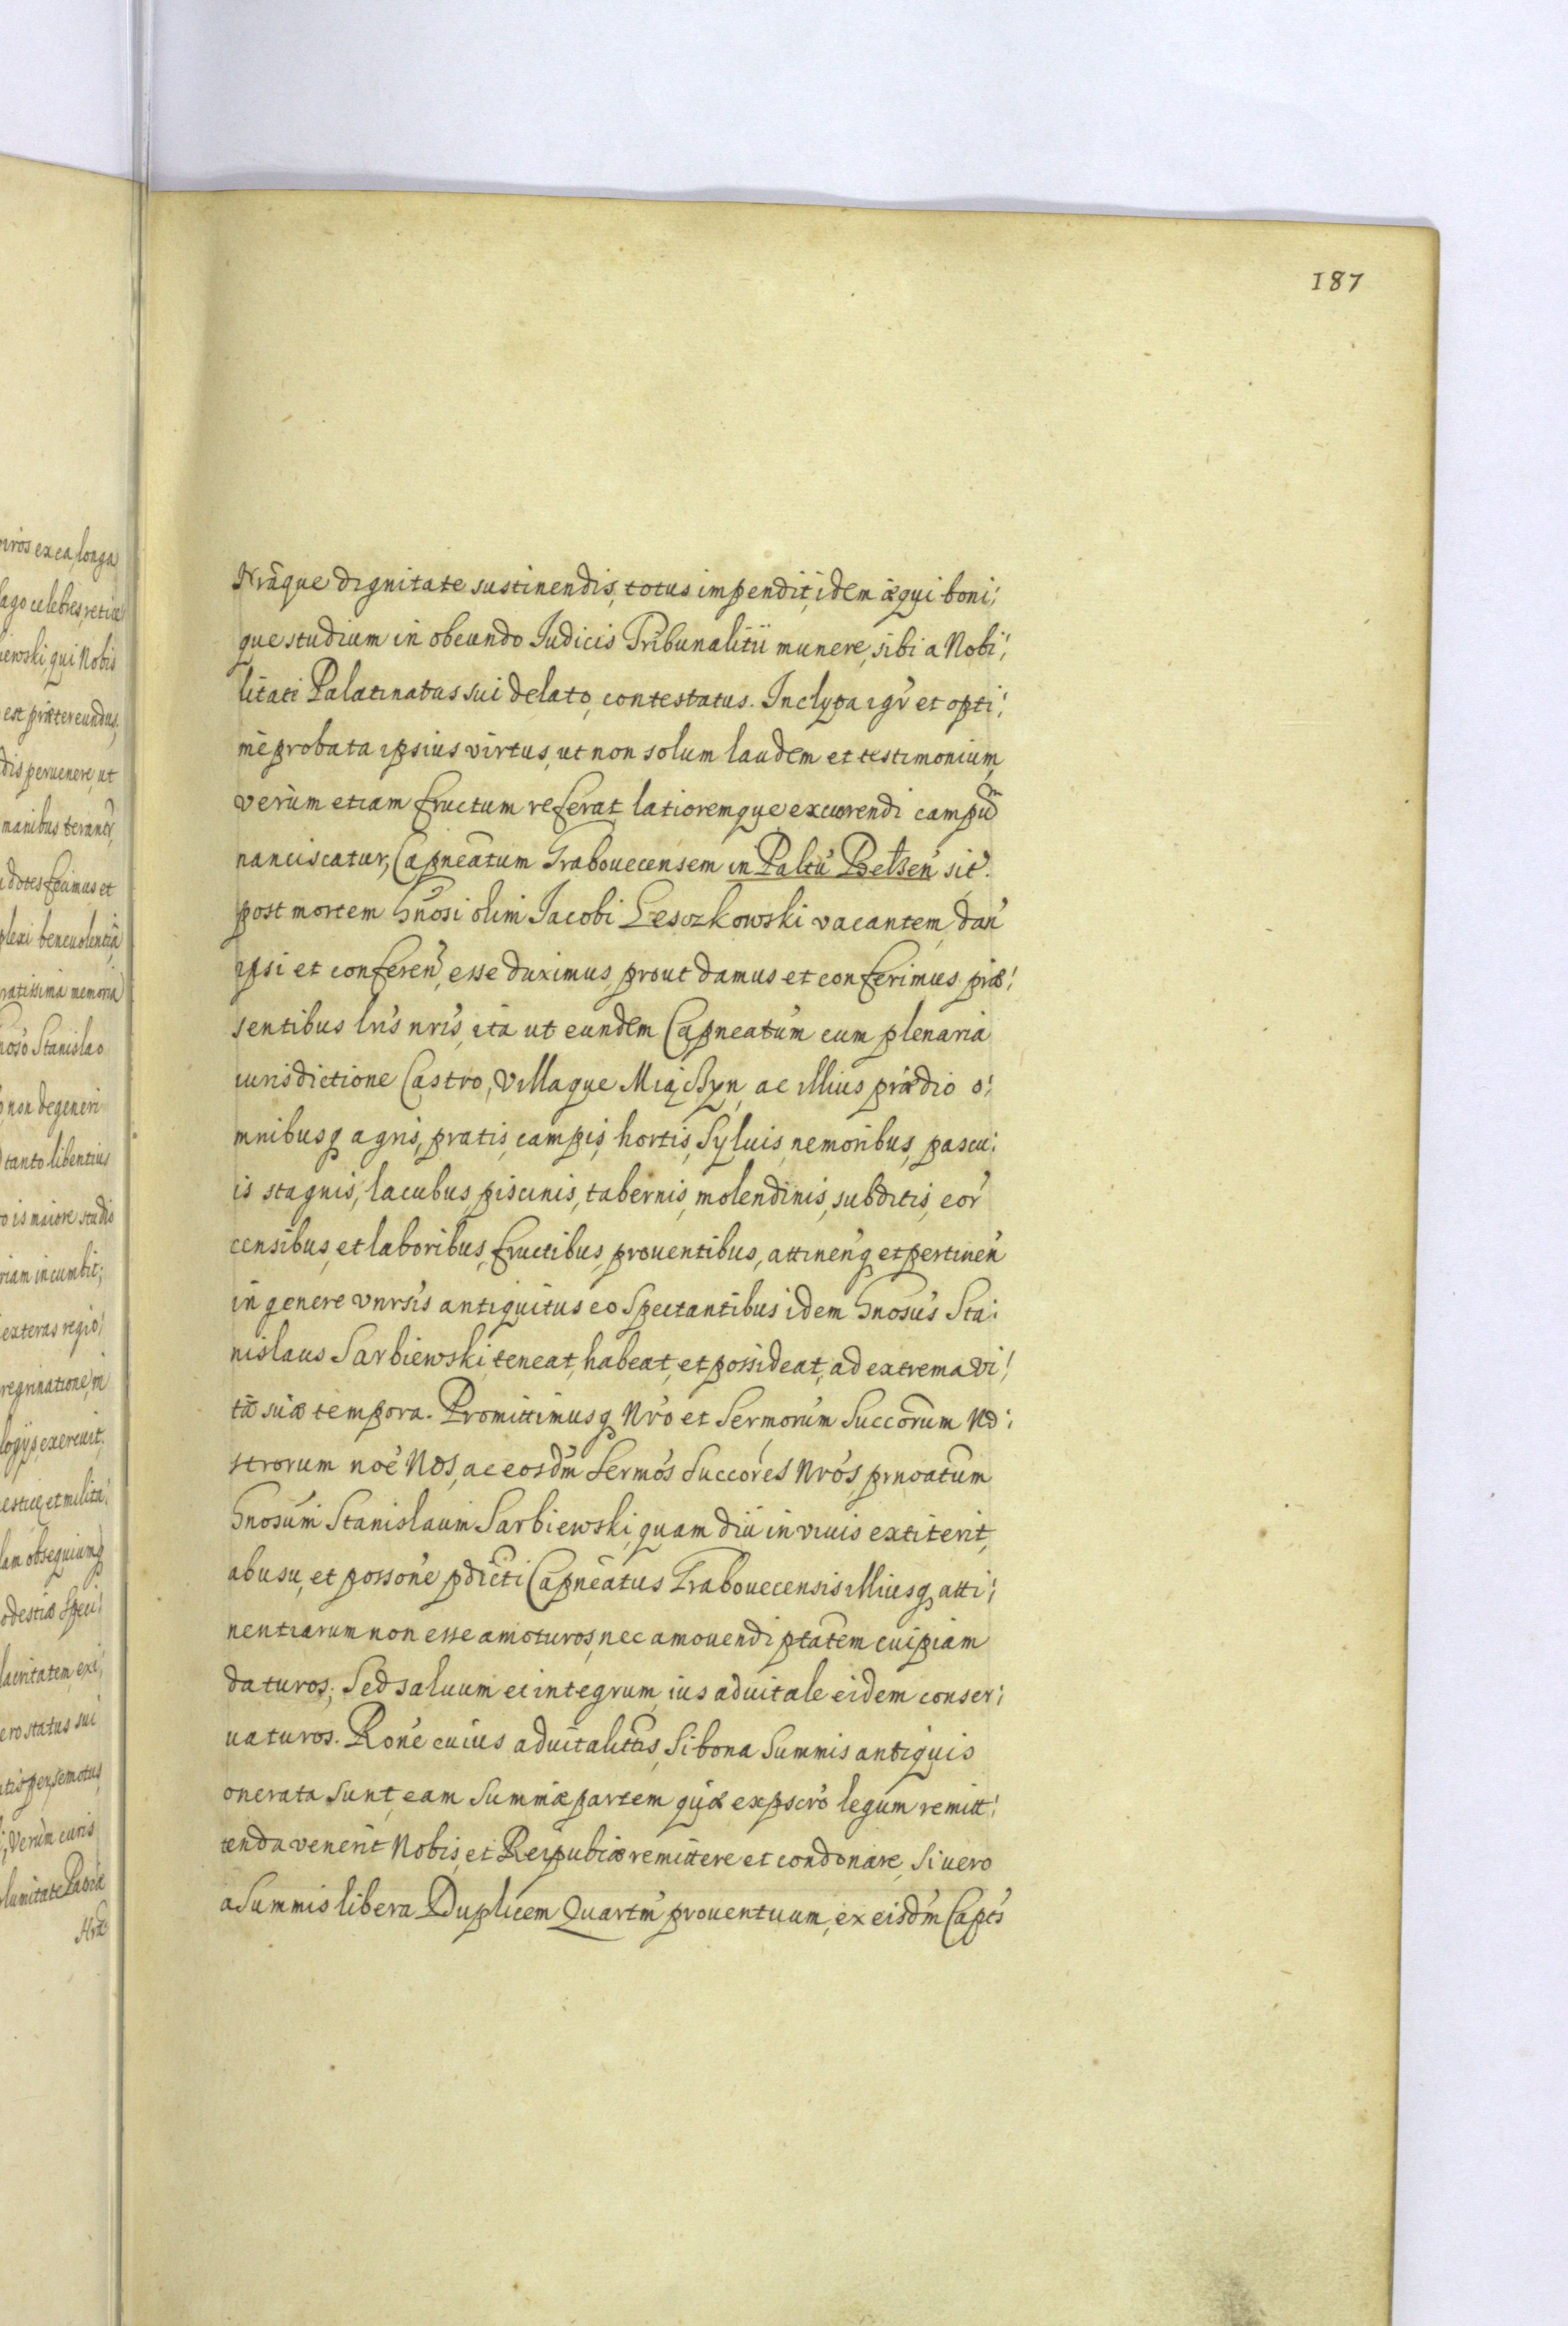 187
Nrâque dignitate sustinendis, totus impendit, idem æqui boni:
que studium in obeundo Iudicis Tribunalitii munere, sibi a Nobi:
litati Palatinatus sui delato, contestatus. Inclyta igr̃ et opti:
mè probata ipsius virtus, ut non solum laudem et testimonium,
verùm etiam fructum referat, latioremque excurrendi campũ
nanciscatur, Capneatum Grabouecensem in Paltũ Belzeñ sit.
post mortem Gnosi olim Iacobi Leszkowski vacantem, dañ
ipsi et conferen̄, esse duximus, prout damus et conferimus præ:
sentibus lris nris, ita ut eundem Capneatum cum plenaria
iurisdictione Castro, Villaque Miączyn, ac illius prædio o:
mnibusq agris, pratis, campis, hortis, syluis, nemoribus, pascu:
is stagnis, lacubus, piscinis, tabernis, molendinis, subditis, eor̃
censibus, et laboribus, fructibus, prouentibus, attineñq et pertineñ
in genere vnrsis antiquitus eo spectantibus idem Gnosus Sta:
nislaus Sarbiewski, teneat, habeat, et possideat, ad extrema vi:
tæ suæ tempora. Promittimusq Nro et Sermorum Succorum No:
strorum noe Nos, ac eosdm̃ Sermos Succores Nros, prnoatum
Gnosum Stanislaum Sarbiewski, quam diu in viuis extiterit,
ab usu, et possone pdicti Capneatus Grabouecensis illiusq atti:
nentiarum non esse amoturos, nec amouendi ptatem cuipiam
daturos; Sed saluum et integrum ius aduitale eidem conser:
uaturos. Rone cuius aduitalittis, si bona summis antiquis
onerata sunt, eam summæ partem quæ ex pscro legum remitt:
tenda venerit Nobis, et Reipubcæ remittere et condonare, si uero
a summis libera Duplicem Quartm̃ prouentuum, ex eisdm̃ Capts